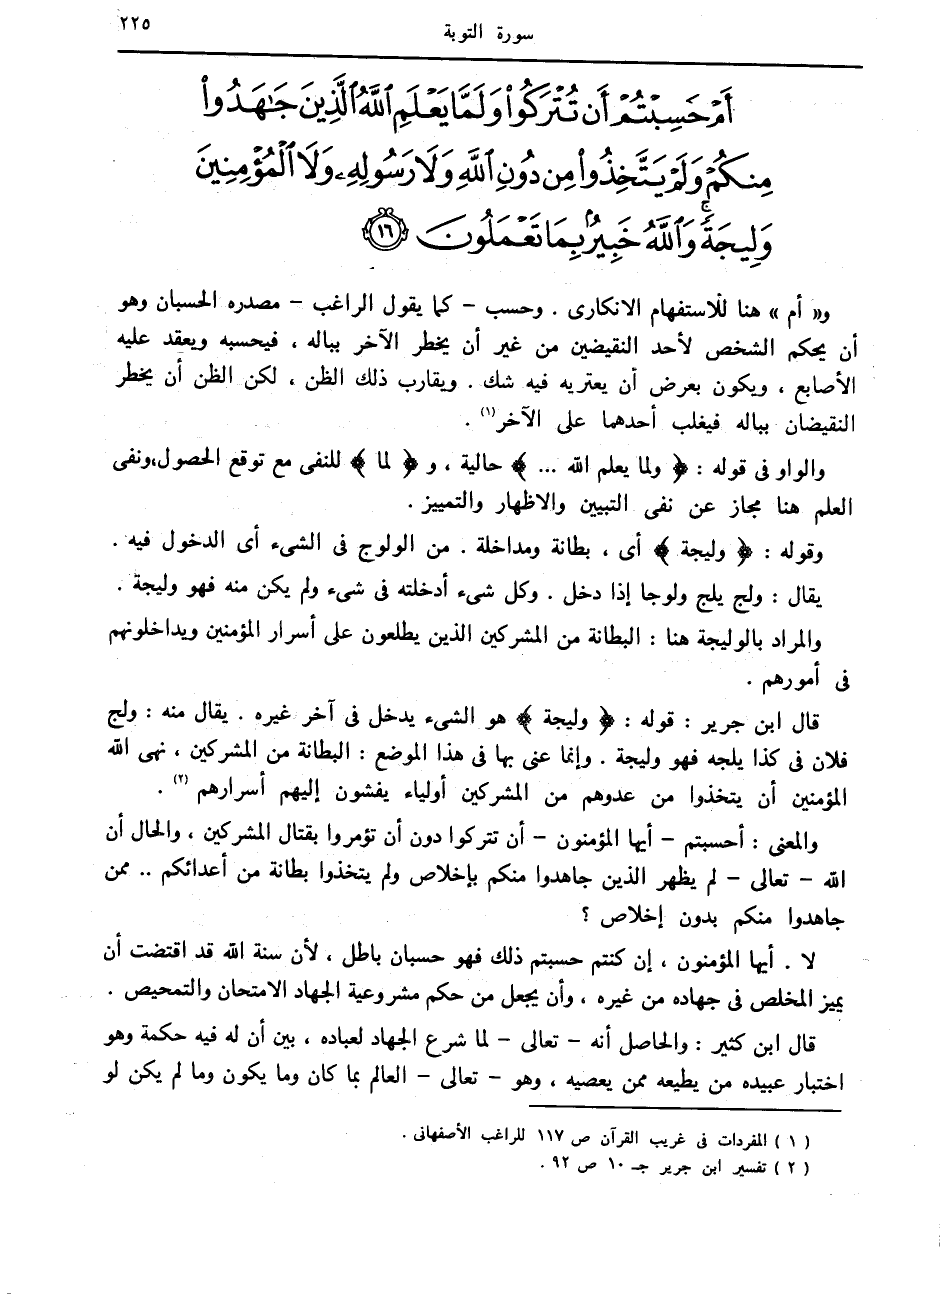 سورة التوبة
٢٢٥
أَمْ حَسِبْتُمْ أَن تُتْرَكُوا۟ وَلَمَّا يَعْلَمِ ٱللَّهُ ٱلَّذِينَ جَـٰهَدُوا۟
مِنكُمْ وَلَمْ يَتَّخِذُوا۟ مِن دُونِ ٱللَّهِ وَلَا رَسُولِهِۦ وَلَا ٱلْمُؤْمِنِينَ
وَلِيجَةً ۚ وَٱللَّهُ خَبِيرٌۢ بِمَا تَعْمَلُونَ ١٦
و« أم » هنا للاستفهام الانكارى . وحسب – كما يقول الراغب – مصدره الحسبان وهو
أن يحكم الشخص لأحد النقيضين من غير أن يخطر الآخر بباله ، فيحسبه ويعقد عليه
الأصابع ، ويكون بعرض أن يعتريه فيه شك . ويقارب ذلك الظن ، لكن الظن أن يخطر
النقيضان بباله فيغلب أحدهما على الآخر(١) .
والواو فى قوله : ﴿ ولما يعلم الله ... ﴾ حالية ، و ﴿ لما ﴾ للنفى مع توقع الحصول،ونفى
العلم هنا مجاز عن نفى التبيين والاظهار والتمييز .
وقوله : ﴿ وليجة ﴾ أى ، بطانة ومداخلة . من الولوج فى الشىء أى الدخول فيه .
يقال : ولج يلج ولوجا إذا دخل . وكل شىء أدخلته فى شىء ولم يكن منه فهو وليجة .
والمراد بالوليجة هنا : البطانة من المشركين الذين يطلعون على أسرار المؤمنين ويداخلونهم
فى أمورهم .
قال ابن جرير : قوله : ﴿ وليجة ﴾ هو الشىء يدخل فى آخر غيره . يقال منه : ولج
فلان فى كذا يلجه فهو وليجة . وإنما عنى بها فى هذا الموضع : البطانة من المشركين ، نهى الله
المؤمنين أن يتخذوا من عدوهم من المشركين أولياء يفشون إليهم أسرارهم (٢) .
والمعنى : أحسبتم – أيها المؤمنون – أن تتركوا دون أن تؤمروا بقتال المشركين ، والحال أن
الله – تعالى – لم يظهر الذين جاهدوا منكم بإخلاص ولم يتخذوا بطانة من أعدائكم .. ممن
جاهدوا منكم بدون إخلاص ؟
لا . أيها المؤمنون ، إن كنتم حسبتم ذلك فهو حسبان باطل ، لأن سنة الله قد اقتضت أن
يميز المخلص فى جهاده من غيره ، وأن يجعل من حكم مشروعية الجهاد الامتحان والتمحيص .
قال ابن كثير : والحاصل أنه – تعالى – لما شرع الجهاد لعباده ، بين أن له فيه حكمة وهو
اختبار عبيده من يطيعه ممن يعصيه ، وهو – تعالى – العالم بما كان وما يكون وما لم يكن لو
( ١ ) المفردات فى غريب القرآن ص ١١٧ للراغب الأصفهانى .
( ٢ ) تفسير ابن جرير جـ ١٠ ص ٩٢ .